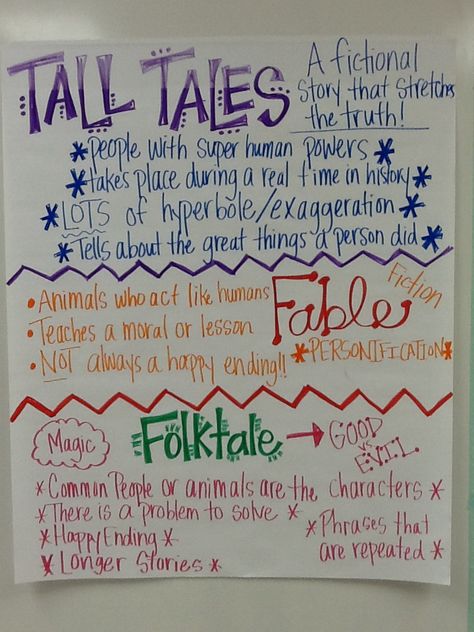 TALL TALES
A fictional
story that stretches
the truth!
*people with super human powers*
*takes place during a real time in history*
*LOTS of hyperbole/exaggeration*
*Tells about the great things a person did*
Fable
Fiction
*PERSONIFICATION*
•Animals who act like humans
•Teaches a moral or lesson
•NOT always a happy ending!!
Magic
Folktale → GOOD
vs.
EVIL
*Common People or animals are the characters*
*There is a problem to solve*
*Happy Ending*
*Longer Stories*
*Phrases that
are repeated*